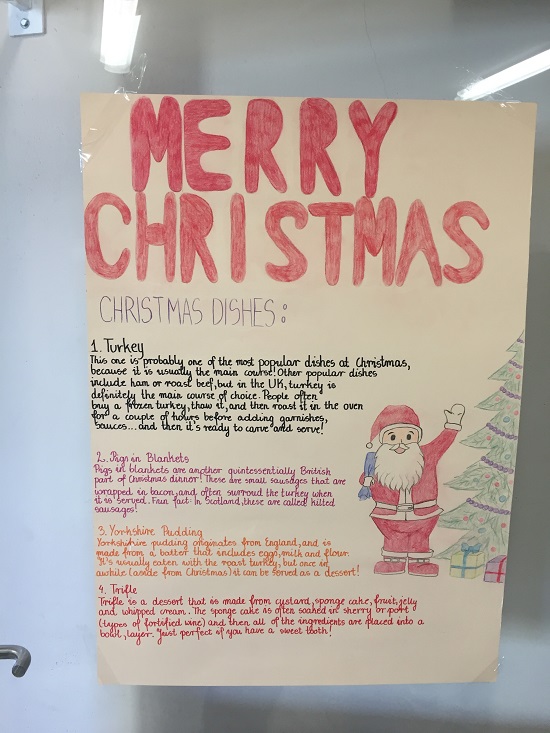 MERRY
CHRISTMAS
CHRISTMAS DISHES:
1. Turkey
This one is probably one of the most popular dishes at Christmas,
because it is usually the main course! Other popular dishes
include ham or roast beef, but in the UK, turkey is
definitely the main course of choice. People often
buy a frozen turkey, thaw it, and then roast it in the oven
for a couple of hours before adding garnishes,
sauces...and then it's ready to carve and serve!
2. Pigs in Blankets
Pigs in blankets are another quintessentially British
part of Christmas dinner! These are small sausages that are
wrapped in bacon, and often surroud the turkey when
it is served. Fun fact: In Scotland, these are called kilted
sausages!
3. Yorkshire Pudding
Yorkshire pudding originates from England, and is
made from a batter that includes eggs, milk and flour.
It's usually eaten with the roast turkey, but once in
awhile (aside from Christmas) it can be served as a dessert!
4. Trifle
Trifle is a dessert that is made from custard, sponge cake, fruit, jelly
and whipped cream. The sponge cake is often soaked in sherry or port
(types of fortified wine) and then all of the ingredients are placed into a
bowl, layer. Just perfect if you have a sweet tooth!